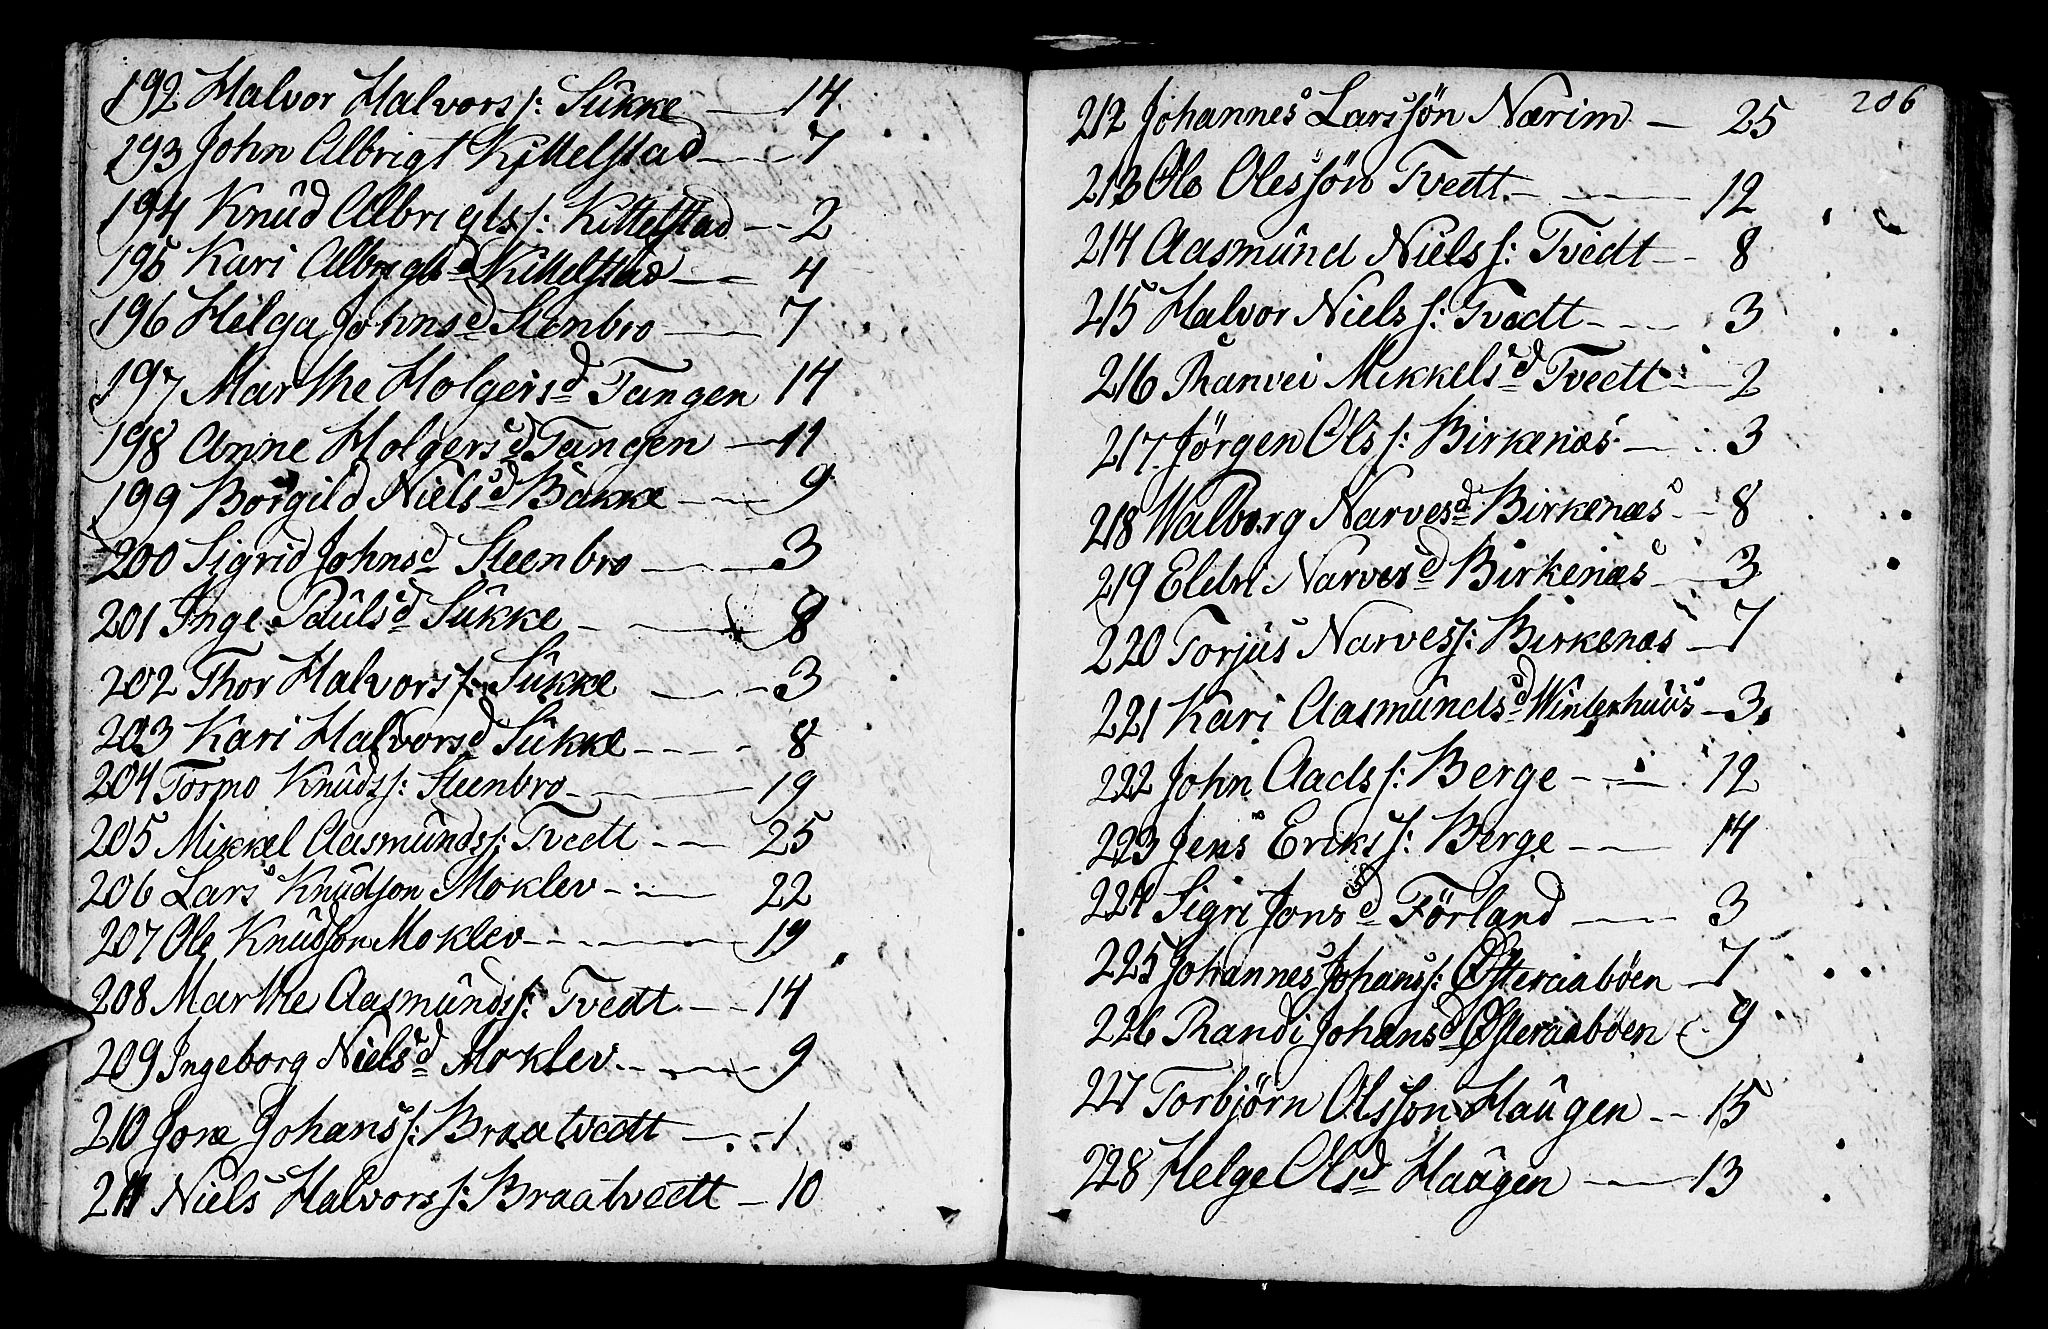 192 Halvor Halvors s: Sûkke — 14
193 John Albrigt Kittelstad — 7
194 Knûd Albrigts s: Kittelstad — 2
195 Kari Albrigts d Kittelstad — 4
196 Helga Johns d Stenbro — 7
197 Marthe Holgers d Tangen 14
198 Anne Holgers d Tangen — 11
199 Borgild Niels d Bakke — 9
200 Sigrid Johns d Steenbro — 3
201 Inge Pauls d Sûkke — 8
202 Thor Halvors s: Sûkke — 3
203 Kari Halvors d Sûkke — 8
204 Tormo Knûds s: Steenbro — 19
205 Mikkel Aasmûnds s: Tvedt — 25
206 Lars Knûdson Moklev — 22
207 Ole Knûdson Moklev — 19
208 Marthe Aasmûnds s: Tvedt — 14
209 Ingeborg Niels d Moklev — 9
210 Jone Johans s: Braatvedt — 1
211 Niels Halvors s: Braatvedt — 10
206
212 Johannes Larssön Nærim — 25
213 Ole Olessön Tvedt — 12
214 Aasmûnd Niels s: Tvedt — 8
215 Halvor Niels s: Tvedt — 3
216 Ranvei Mikkels d Tvedt — 2
217 Jörgen Ols s: Birkenæs — 3
218 Walborg Narves d Birkenæs — 8
219 Eldri Narves d Birkenæs — 3
220 Torjûs Narves s: Birkenæs — 7
221 Kari Aasmûnds d Winterhûûs — 3
222 John Aads s: Berge — 12
223 Jens Eriks s: Berge — 14
224 Sigri Jons d Förland — 3
225 Johannes Johans s: Østeraabøen — 7
226 Randi Johans d Østeraabøen 9
227 Torbjörn Olsson Haûgen — 15
228 Helge Ols d Haûgen — 13